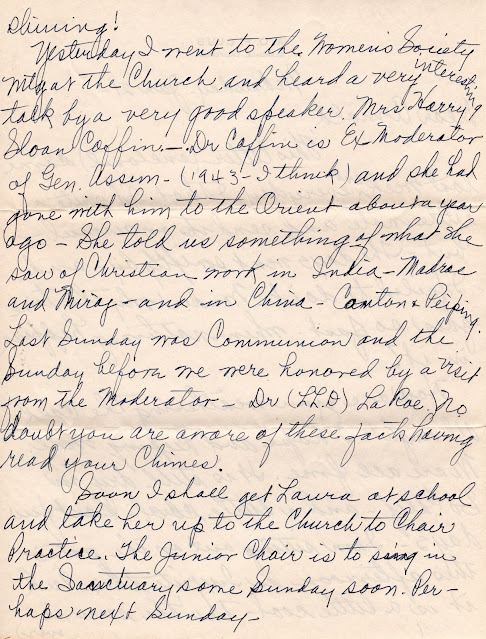 shining!
Yesterday I went to the Womens Society
Mtg at the Church, and heard a very interesting
talk by a very good speaker. Mrs Harry
Sloan Coffin. — Dr Coffin is Ex Moderator
of Gen. Assem - (1943 - I think) and she had
gone with him to the Orient about a year
ago - She told us something of what she
saw of Christian work in India - Madras
and Miraj - and in China - Canton & Peiping.
Last Sunday was Communion and the
Sunday before we were honored by a visit
from the Moderator - Dr (LL.D) LaRoe. No
doubt you are aware of these facts having
read your Chimes.
Soon I shall get Laura at school
and take her up to the Church to Chair
Practice. The Junior Chair is to sing in
the Sanctuary some Sunday soon. Per-
haps next Sunday -